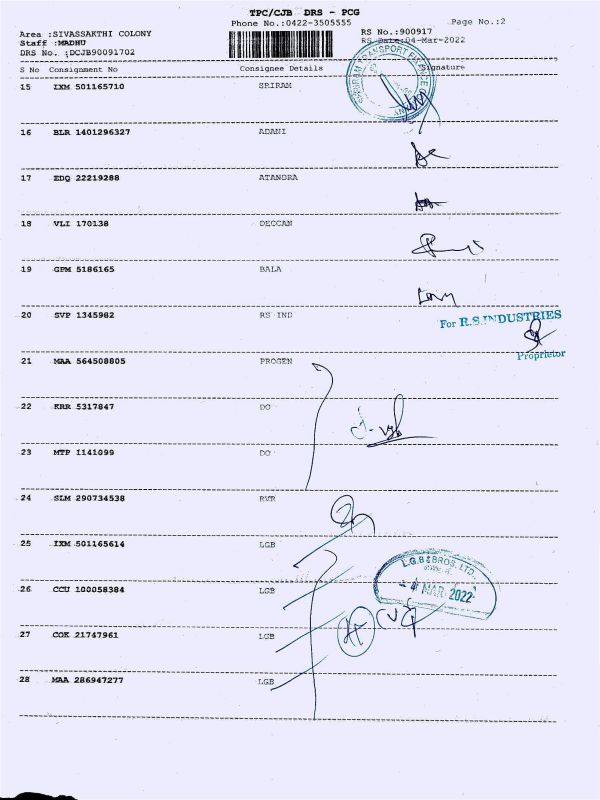 TPC/CJB DRS - PCG
Phone No.:0422-3505555
Page No.:2
Area :SIVASSAKTHI COLONY
RS No.:900917
Staff :MADHU
RS Date:04-Mar-2022
DRS No. :DCJB90091702
S No Consignment No Consignee Details Signature
15 IXM 501165710 SRIRAM
16 BLR 1401296327 ADANI
17 EDQ 22219288 ATANDRA
18 VLI 170138 DECCAN
19 GPM 5186165 BALA
20 SVP 1345982 RS IND
For R.S.INDUSTRIES
Proprietor
21 MAA 564508805 PROGEN
22 KRR 5317847 DO
23 MTP 1141099 DO
24 SLM 290734538 RVR
25 IXM 501165614 LGB
L.G.B & BROS. LTD.
MAR 2022
26 CCU 100058384 LGB
27 COK 21747961 LGB
28 MAA 286947277 LGB